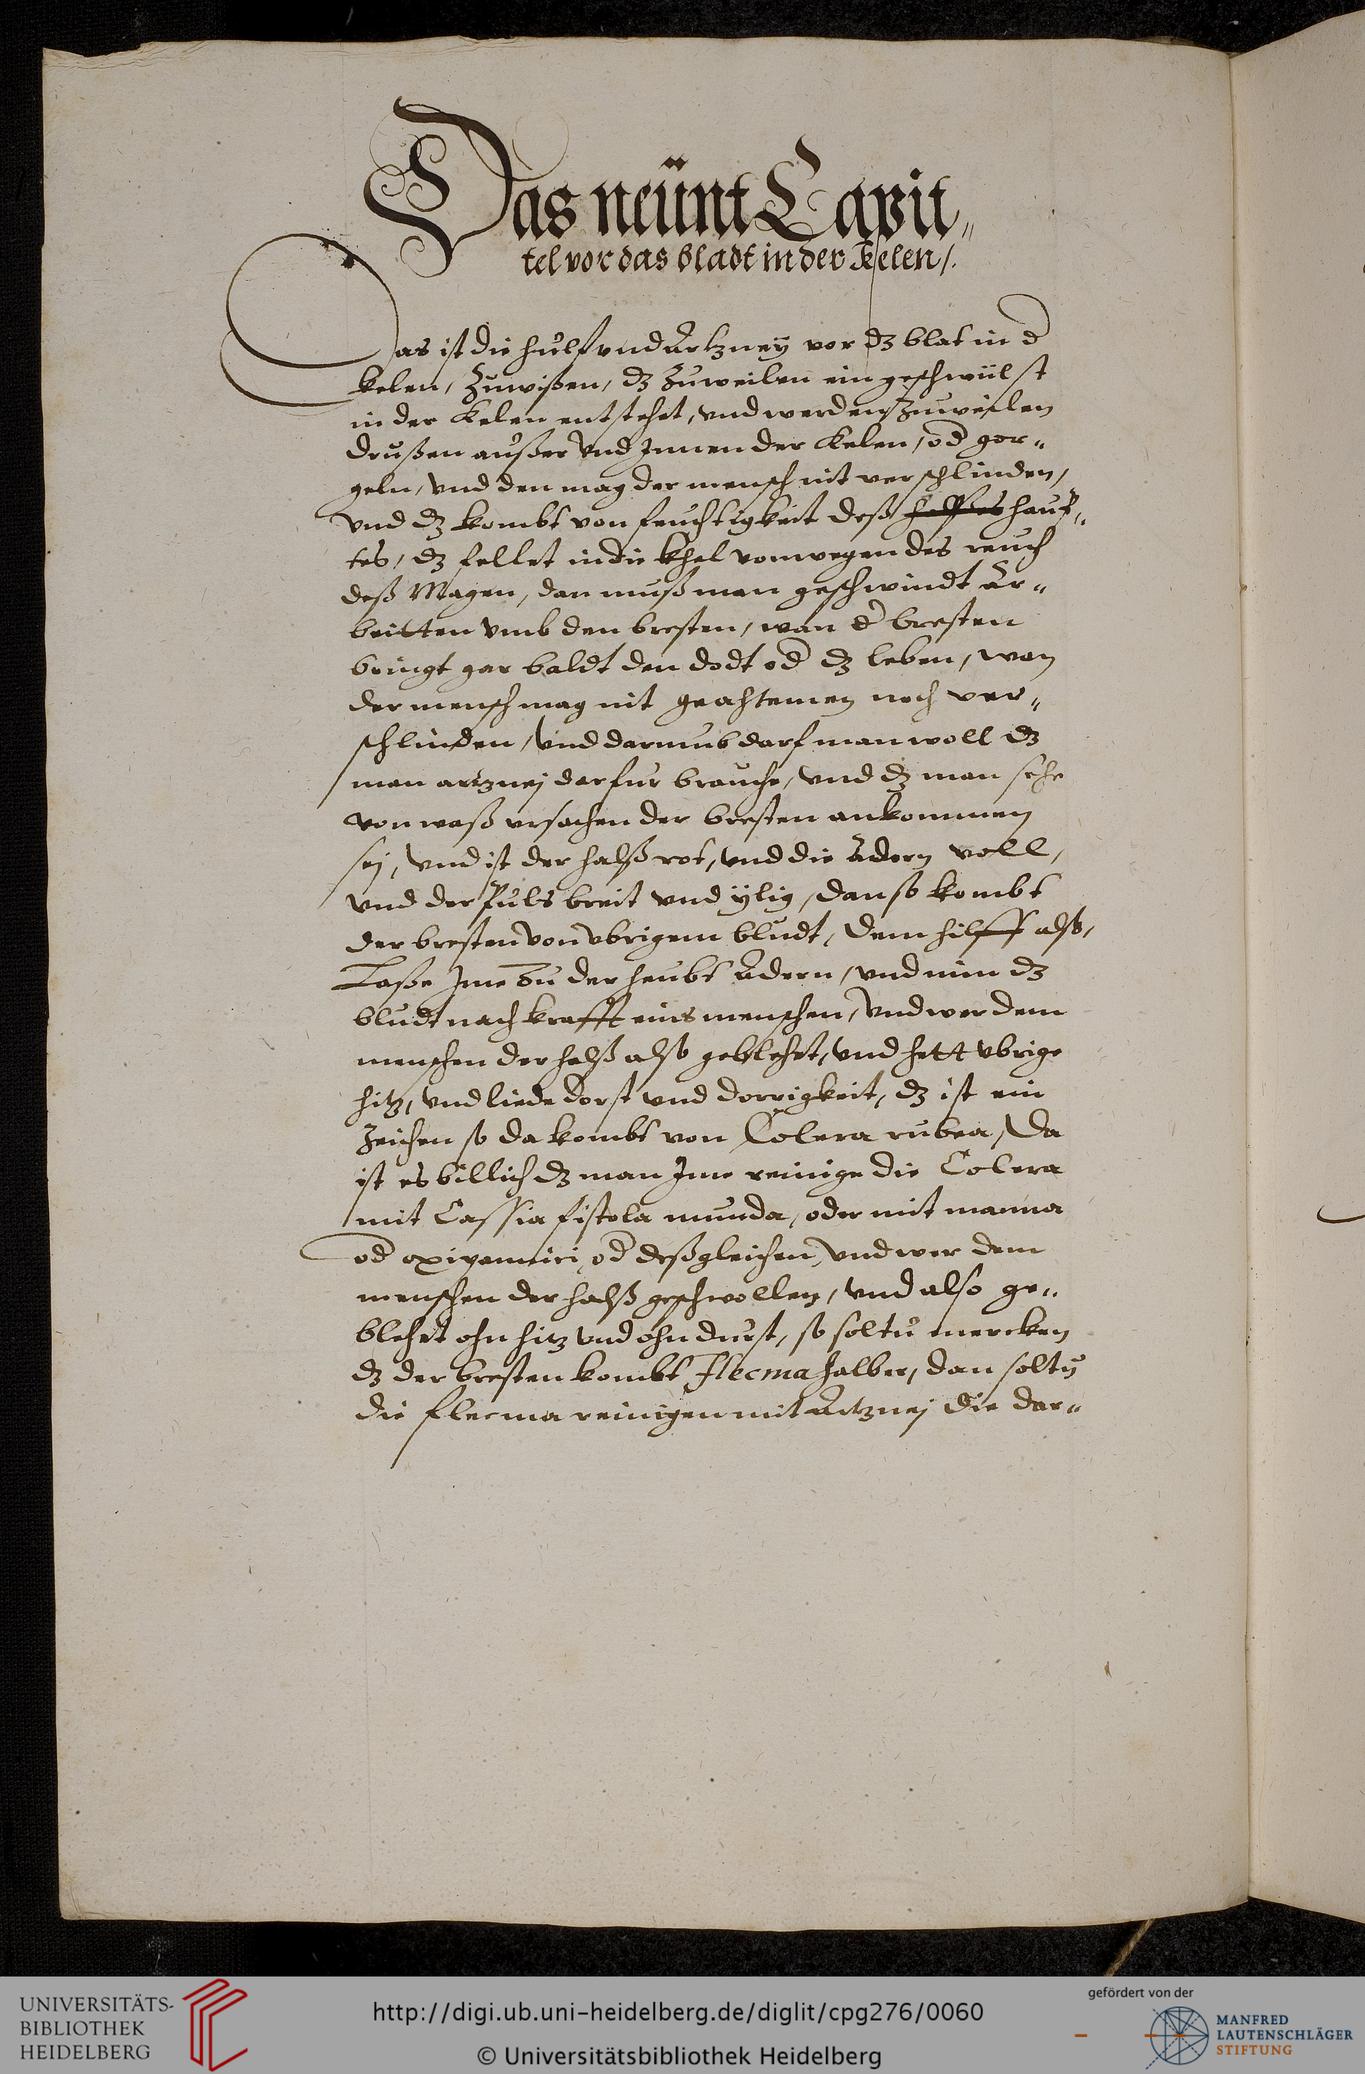 Das neünt Capit„
tel vor das bladt in der Kelen /.
Das ist die hulf vnd Artzneÿ vor dz blat in d
kelen, Zuwißen, dz Zuweilen ein geschwülst
in der Kelen entstehet, vnd werden Zuweilen
drußen außer vnd Jnnen der Kelen, od gor„
geln, vnd den mag der mensch nit verschlinden,
vnd dz kombt von feuchtigkeit deß halßes haup„
tes, dz fellet in die Khel von wegen des reuch
deß Magen, dan muß man geschwindt Ar„
beitten vmb den bresten, wan d bresten
bringt gar baldt den dodt od dz leben, wan
der mensch mag nit geahtemen noch ver„
schlinden, vnd darumb darf man woll dz
man artznej darfur brauche, vnd dz man sehe
von waß vrsachen der bresten ankommen
sej, vnd ist der halß rot, vnd die Adern voll,
vnd der Puls breit vnd ÿlig, dan so kombt
der bresten von vbrigem bludt, dem hilff alß,
Laße Jme zu der heubt Adern, vnd nim dz
bludt nach krafft eins menschen, vnd wer dem
menschen der halß also geblehet, vnd hett vbrige
hitz, vnd liede dorst vnd dorrigkeit, dz ist ein
Zeichen so da kombt von Colera rubea, Da
ist es billich dz man Jme reinige die Colera
mit Cassia fistola munda, oder mit manna
od od deßgleichen, vnd wer dem
menschen der halß geschwollen, vnd also ge„
blehet ohn hitz vnd ohn durst, so soltu mercken
dz der bresten kombt Flecma halber, dan soltu
die flecma reinigen mit Artznej die dar„
UNIVERSITÄTS-
BIBLIOTHEK
HEIDELBERG
http://digi.ub.uni-heidelberg.de/diglit/cpg276/0060
© Universitätsbibliothek Heidelberg
gefördert von der
MANFRED
LAUTENSCHLÄGER
STIFTUNG